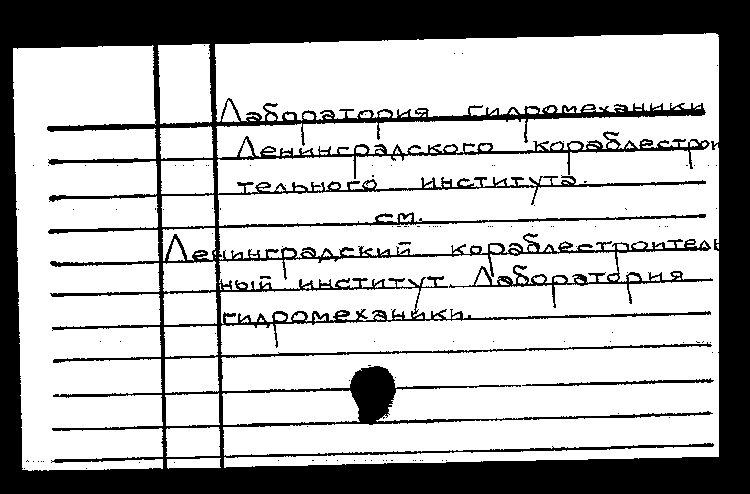 Лаборатория гидромеханики
Ленинградского кораблестрои
тельного института.
см.
Ленинградский кораблестроитель
ный институт. Лаборатория
гидромеханики.